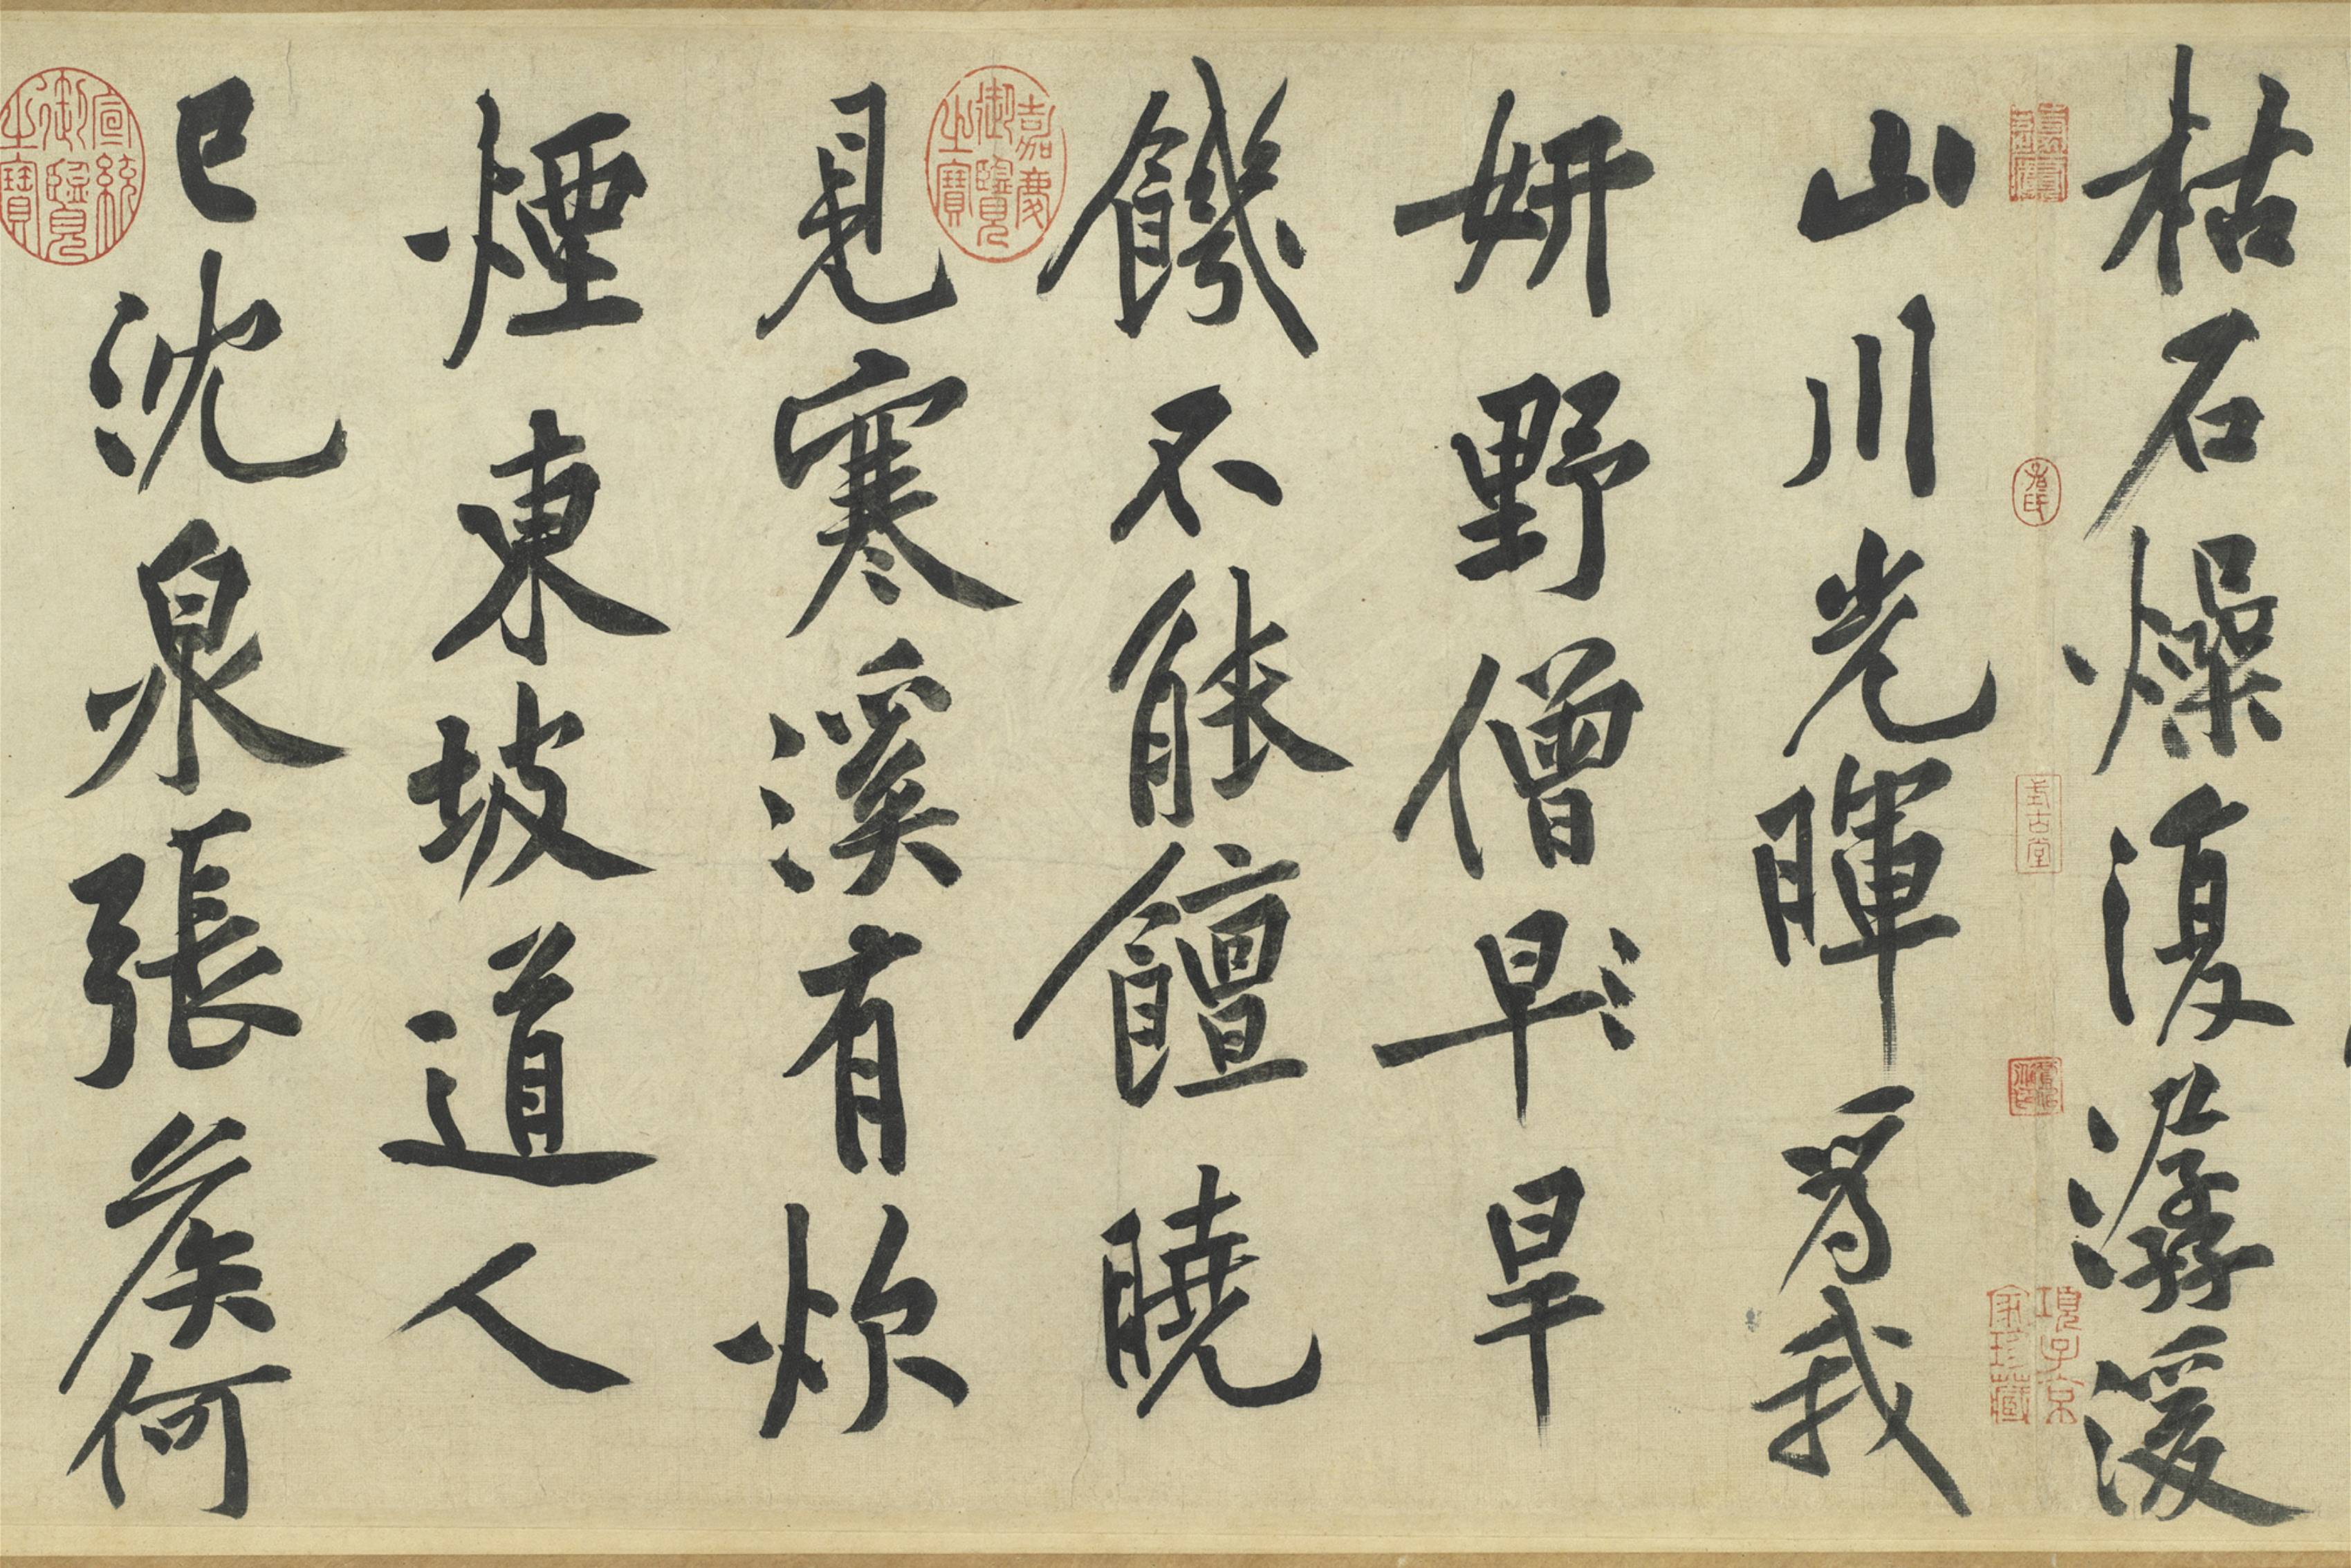 枯石燥復潺湲
山川光暉爲我
妍野僧早旱
饑不能饘曉
見寒溪有炊
煙東坡道人
已沈泉張侯何
項子京家珍藏
式古堂
嘉慶御覽之寶
宣統御覽之寶